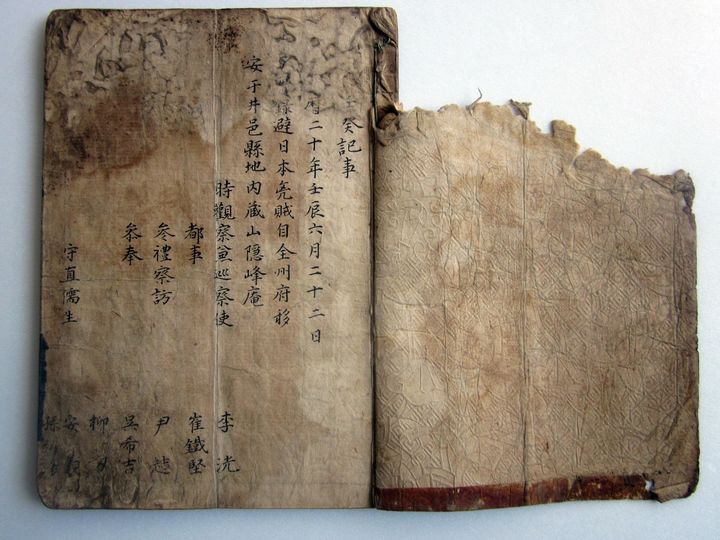 癸記事
曆二十年壬辰六月二十二日
避日本兇賊自全州府移
安于井邑縣地內藏山隱峰庵
時觀察兼巡察使 李洸
都事 崔鐵堅
參禮察訪 尹趌
參奉 吳希吉
柳
守直儒生 安
孫